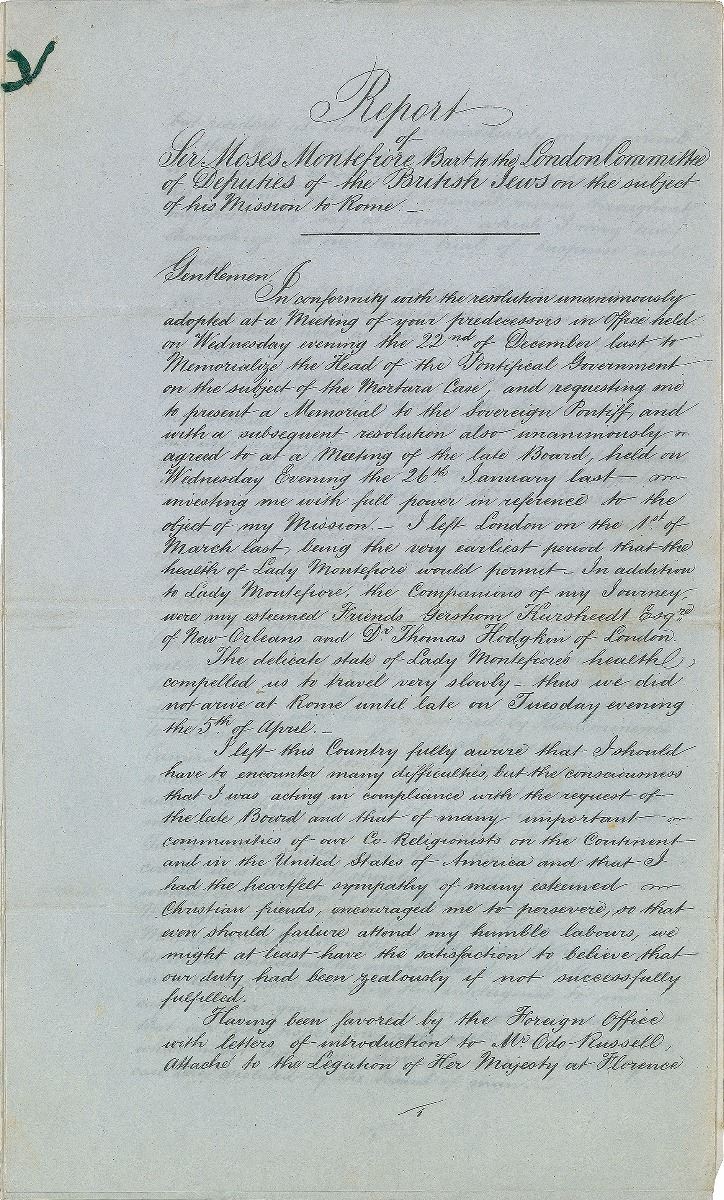 Report
of
Sir Moses Montefiore, Bart to the London Committee
of Deputies of the British Jews on the subject
of his Mission to Rome. —
Gentlemen,
In conformity with the resolution unanimously
adopted at a Meeting of your predecessors in Office held
on Wednesday evening the 22nd of December last to
Memorialize the Head of the Pontifical Government
on the subject of the Mortara Case, and requesting me
to present a Memorial to the Sovereign Pontiff, and
with a subsequent resolution also unanimously
agreed to at a Meeting of the late Board, held on
Wednesday Evening the 26th January last —
investing me with full power in reference to the
object of my Mission. — I left London on the 1st of
March last, being the very earliest period that the
health of Lady Montefiore would permit — In addition
to Lady Montefiore, the Companions of my Journey,
were my esteemed Friends Gershom Kursheedt Esqre
of New Orleans and Dr Thomas Hodgkin of London.
The delicate state of Lady Montefiore's health,
compelled us to travel very slowly — thus we did
not arive at Rome until late on Tuesday evening
the 5th of April. —
I left this Country fully aware that I should
have to encounter many difficulties, but the consciousness
that I was acting in compliance with the request of
the late Board and that of many important
communities of our Co-Religionists on the Continent
and in the United States of America and that I
had the heartfelt sympathy of many esteemed
Christian friends, encouraged me to persevere, so that
even should failure attend my humble labours, we
might at least have the satisfaction to believe that
our duty had been zealously if not successfully
fulfilled.
Having been favored by the Foreign Office
with letters of introduction to Mr Odo Russell,
Attaché to the Legation of Her Majesty at Florence
1